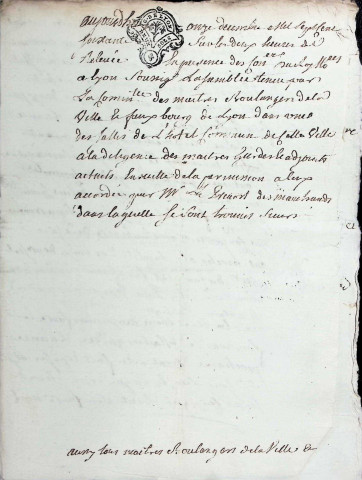 aujourdhuy onze decembre mil sept cent
soixante sur les deux heures de
Relevée en presence des Con.ers du Roy No.res
a Lyon soussig. Lassemblée tenue par
La Comm.té des maitres Boulangers de la
Ville et faux bourg de Lyon dans une
des salles de L'hotel Commun de cette Ville
a la diligence des maitres Gardes &
actuels ensuitte de la permission a eux
accordée par Mr. Le Prevost des marchands
dans laquelle se sont trouvés sieurs
aussy tous maitres Boulangers de la Ville &